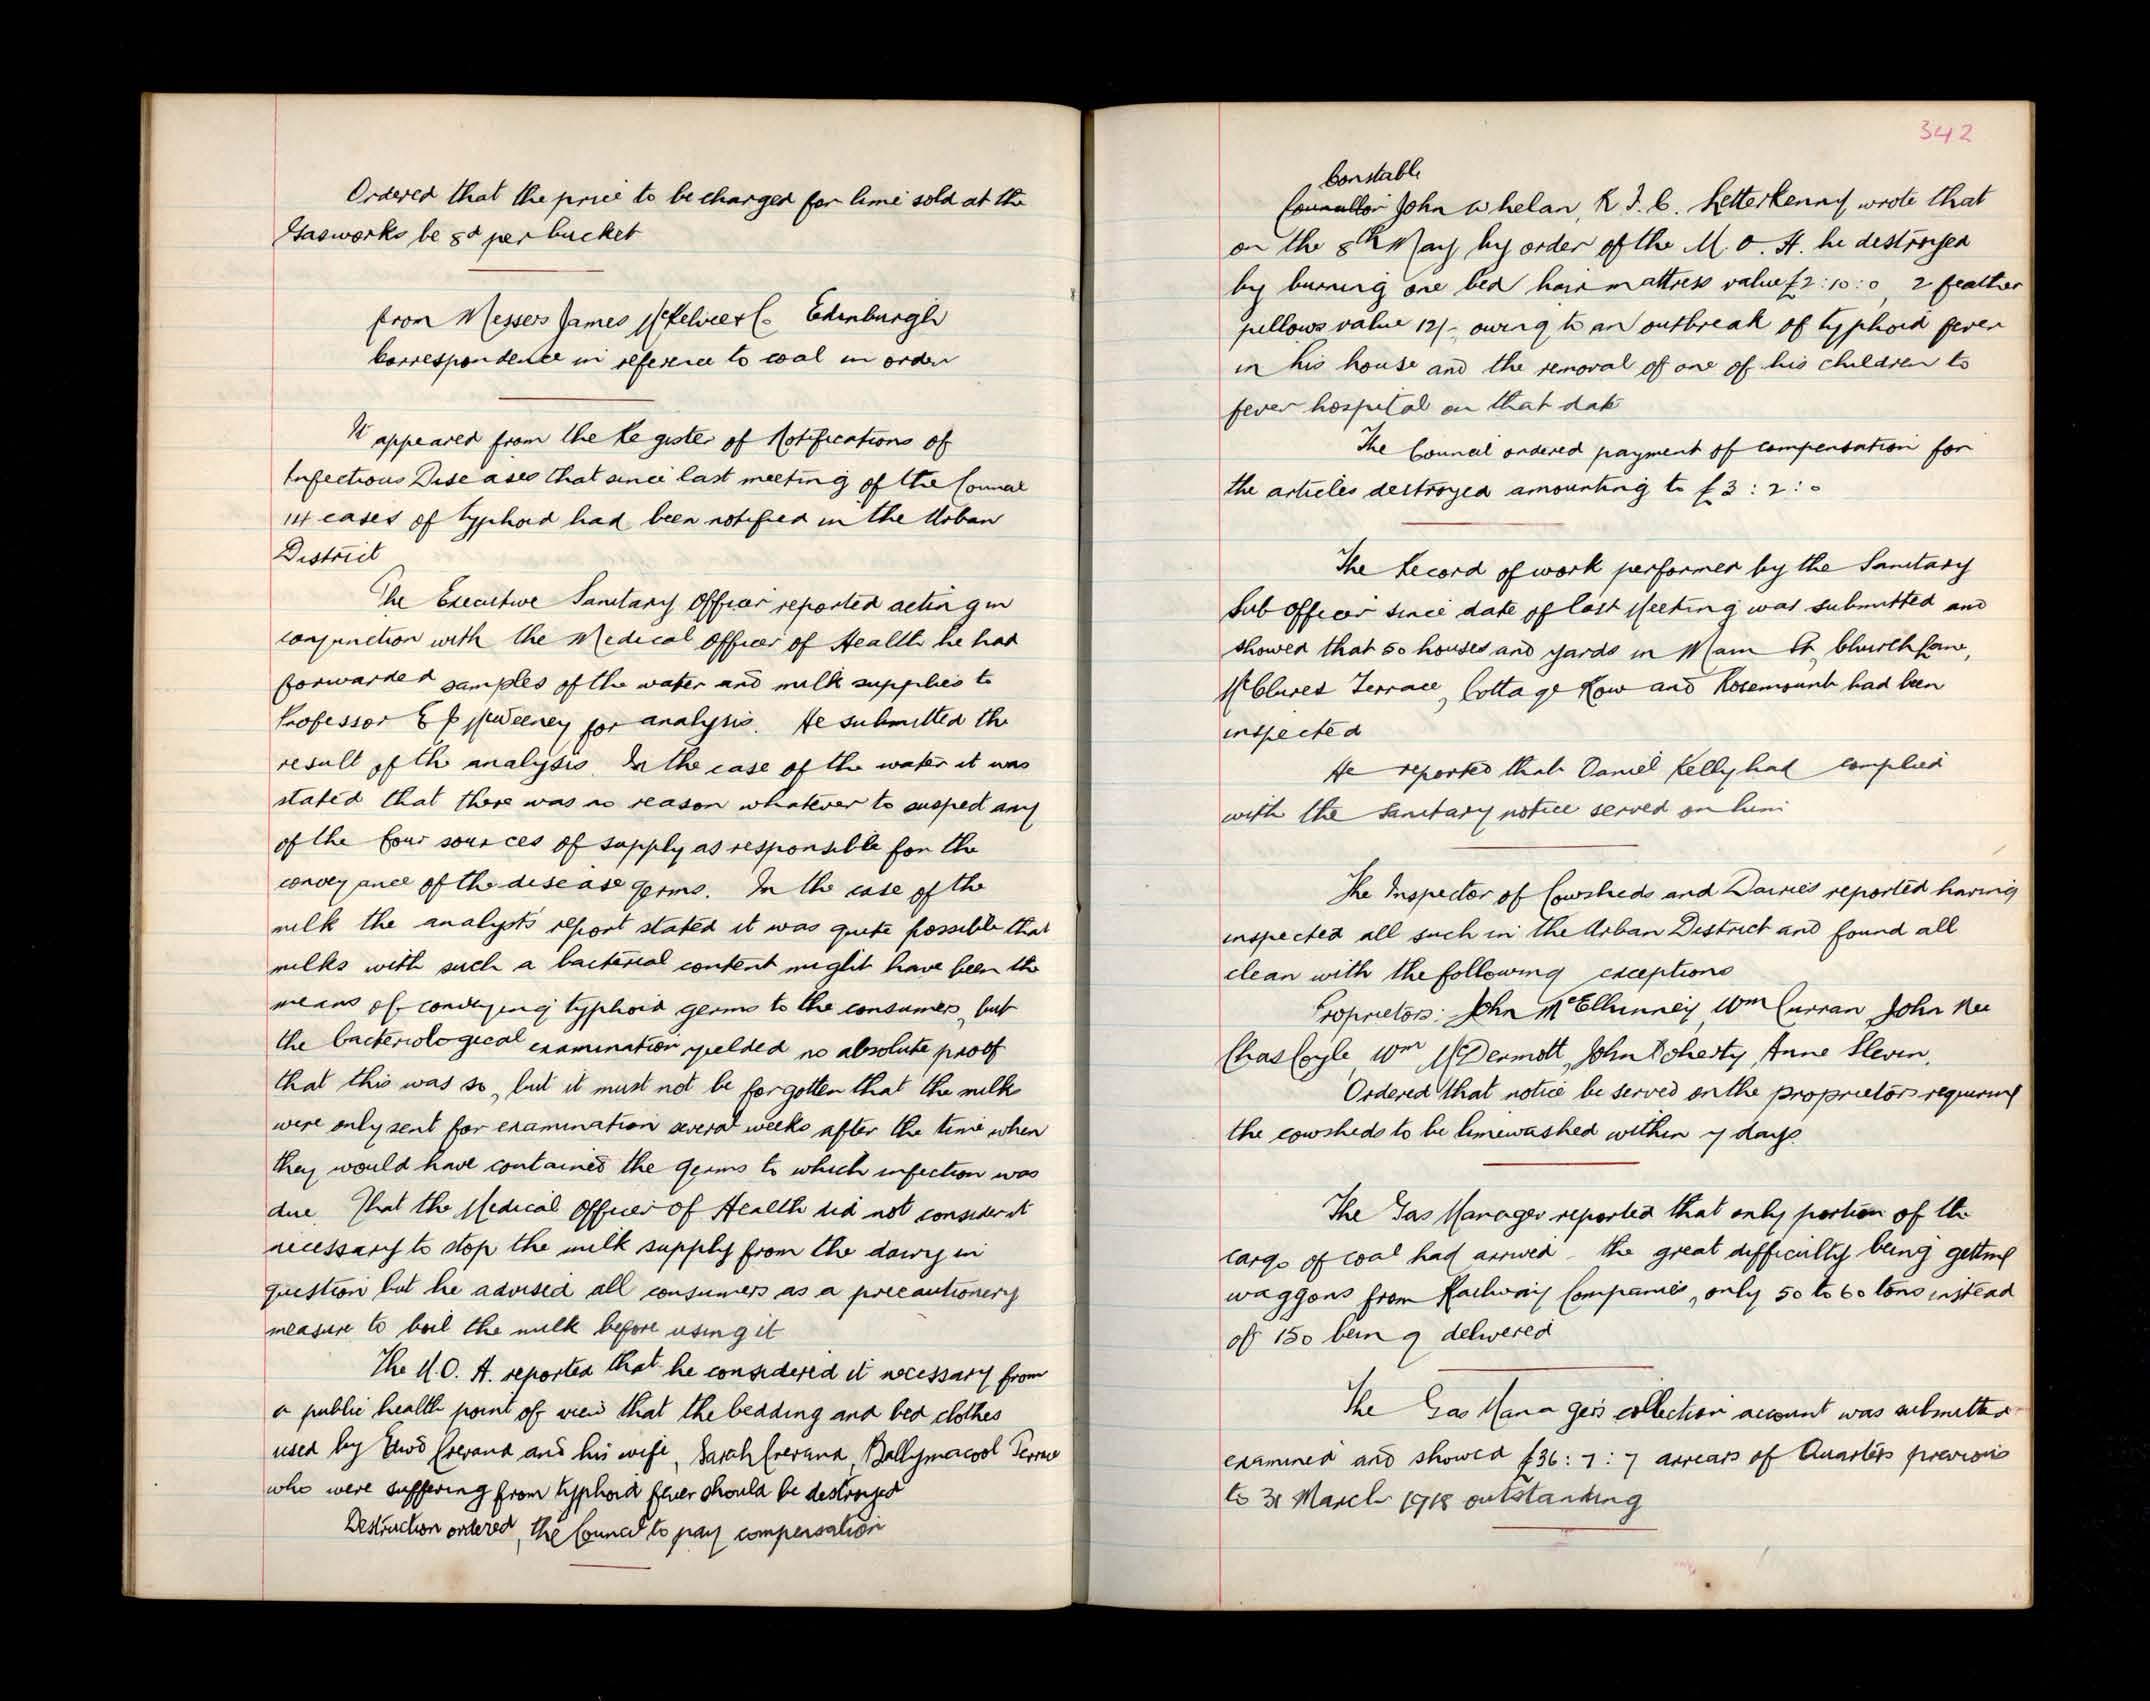 Ordered that the price to be charged for lime sold at the
Gasworks be 8d per bucket
from Messers James McKelvie & Co Edinburgh
Correspondence in reference to coal on order
It appeared from the Register of Notifications of
Infectious Diseases that since last meeting of the Council
14 cases of typhoid had been notified in the Urban
District
The Executive Sanitary Officer reported acting in
conjunction with the Medical Officer of Health he had
forwarded samples of the water and milk supplies to
Professor E J McWeeney for analysis. He submitted the
result of the analysis. In the case of the water it was
stated that there was no reason whatever to suspect any
of the four sources of supply as responsible for the
conveyance of the disease germs. In the case of the
milk the analysts' report stated it was quite possible that
milks with such a bacterial content might have been the
means of conveying typhoid germs to the consumers, but
the bacteriological examination yielded no absolute proof
that this was so, but it must not be forgotten that the milks
were only sent for examination several weeks after the time when
they would have contained the germs to which infection was
due. That the Medical Officer of Health did not consider it
necessary to stop the milk supply from the dairy in
question but he advised all consumers as a precautionery
measure to boil the milk before using it
The M.O.H. reported that he considered it necessary from
a public health point of view that the bedding and bed clothes
used by Edwd Crerand and his wife, Sarah Crerand, Ballymacool Terrace
who were suffering from typhoid fever should be destroyed
Destruction ordered, the Council to pay compensation
342
Constable
Councillor John Whelan, R.I.C. Letterkenny wrote that
on the 8th May by order of the M.O.H. he destroyed
by burning one bed hair mattress value £2:10:0, 2 feather
pillows value 12/- owing to an outbreak of typhoid fever
in his house and the removal of one of his children to
fever hospital on that date
The Council ordered payment of compensation for
the articles destroyed amounting to £3:2:0
The Record of work performed by the Sanitary
Sub Officer since date of last Meeting was submitted and
showed that 50 houses and yards in Main St, Church Lane,
McClures Terrace, Cottage Row and Rosemount had been
inspected
He reported that Daniel Kelly had complied
with the sanitary notice served on him
The Inspector of Cowsheds and Dairies reported having
inspected all such in the Urban District and found all
clean with the following exceptions
Proprietors: John McElhinney, Wm Curran, John Nee
Chas Coyle, Wm McDermott, John Doherty, Anne Slevin.
Ordered that notice be served on the proprietors requiring
the cowsheds to be limewashed within 7 days.
The Gas Manager reported that only portion of the
cargo of coal had arrived - the great difficulty being getting
waggons from Railway Companies, only 50 to 60 tons instead
of 150 being delivered
The Gas Manager's collection account was submitted
examined and showed £36:7:7 arrears of Quarters previous
to 31 March 1918 outstanding